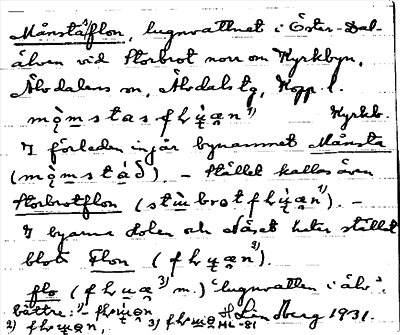 Månstaflon, lugnvattnet i Öster-Dal-
älven vid Storbrot norr om Kyrkbyn,
Älvdalens sn, Älvdals tg, Kopp. l.
mǫ̀mstasflųæn 1) Kyrkb.
I förleden ingår bynamnet Månsta
(mǫ̀mstáð). – Stället kallas även
Storbrotflon (stùbrotflųæn 1)). –
I byarna Holen och Näset heter stället
blott Flon (flųæn 2)).
flo (flųæ 3) m.) "lugnvatten i älv".
bättre: 1) -flųæn
2) flųæn, 3) flųæ HL -81 H Lindberg 1931.